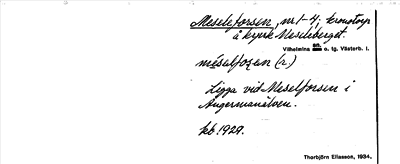 Meseleforsen, nr 1-4, kronotorp
å kyrk Meseleberget.
Vilhelmina sn. o. tg. Västerb. l.
mèselfoʂen (2)
Ligga vid Meselforsen i
Ångermanälven.
kb. 1929.
Thorbjörn Eliasson, 1934.